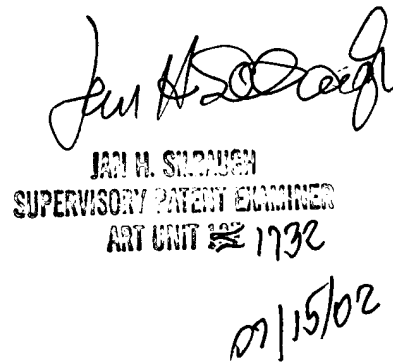 Jan H. Silbaugh
JAN H. SILBAUGH
SUPERVISORY PATENT EXAMINER
ART UNIT 1732
07/15/02